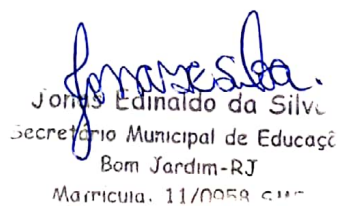 Jonas Edinaldo da Silv
Secretário Municipal de Educaçã
Bom Jardim-RJ
Matrícula. 11/0958